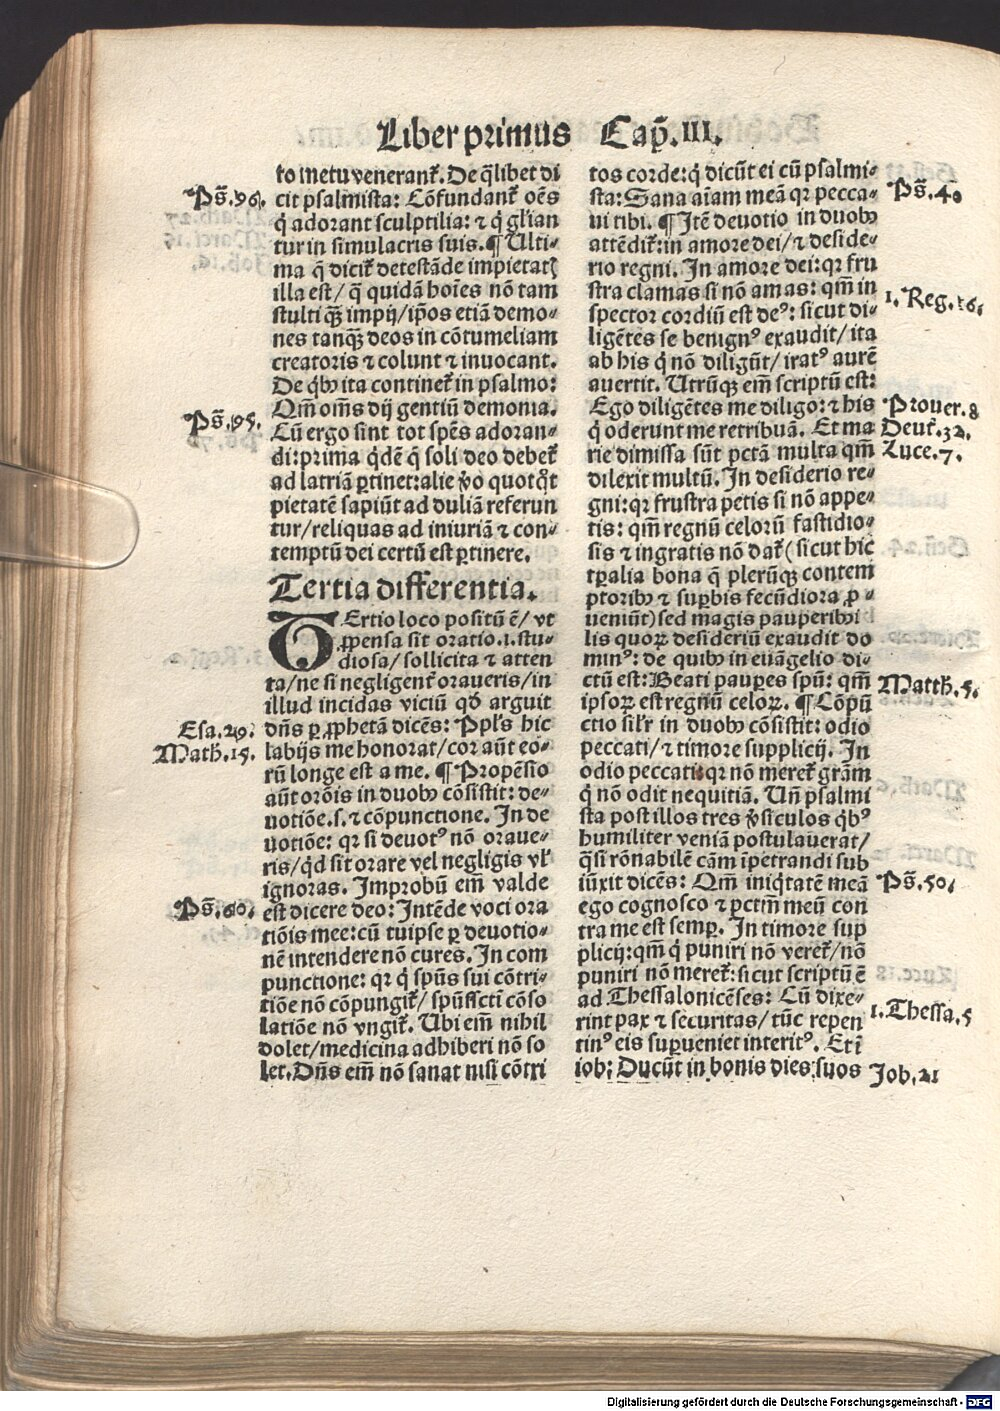 Liber primus Cap̃. III.
to metu venerant᷑. De q̃libet di
Ps̃.96. cit psalmista: Cõfundant᷑ oẽs
q̇ adorant sculptilia: ⁊ q̇ gl̃ian
tur in simulacris suis. ¶ Ulti⸗
ma q̃ dicit᷑ detestãde impietatꝭ
illa est/ q̃ quidã hoĩes nõ tam
stulti qȝ̃ impij/ ip̃os etiã demo⸗
nes tanqȝ̃ deos in cõtumeliam
creatoris ⁊ colunt ⁊ inuocant.
De q̇bꝰ ita continet᷑ in psalmo:
Ps̃.95. Qm̃ om̃s dij gentiũ demonia.
Cũ ergo sint tot sp̃es adoran⸗
di: prima q̇dẽ q̃ soli deo debet᷑
ad latriã ꝑtinet: alie ṽo quotq̇t
pietatẽ sapiũt ad duliã referun
tur/ reliquas ad iniuriã ⁊ con⸗
temptũ dei certũ est ꝑtinere.
Tertia differentia.
TErtio loco positũ ẽ/ vt
ꝓpensa sit oratio.i.stu⸗
diosa/ sollicita ⁊ atten
ta/ ne si negligent᷑ oraueris/ in
illud incidas viciũ qd̃ arguit
Esa.29. dñs ꝑ ꝓphetã dicẽs: Ppl̃s hic
Math.15. labijs me honorat/ cor aũt eo⸗
rũ longe est a me. ¶ Propẽsio
aũt orõis in duobꝰ cõsistit: de⸗
uotiõe.s. ⁊ cõpunctione. In de
uotiõe: qr si deuotꝰ nõ oraue⸗
ris/ q̇d sit orare vel negligis vl̃
ignoras. Improbũ em̃ valde
Ps̃.60. est dicere deo: Intẽde voci ora
tiõis mee: cũ tuipse ꝑ deuotio⸗
nẽ intendere nõ cures. In com
punctione: qr q̇ sp̃us sui cõtri⸗
tiõe nõ cõpungit᷑/ sp̃ussct̃i cõso
latiõe nõ vngit᷑. Ubi em̃ nihil
dolet/ medicina adhiberi nõ so
let. Dñs em̃ nõ sanat nisi cõtri
tos corde: q̇ dicũt ei cũ psalmi⸗
sta: Sana aĩam meã qr pecca⸗ Ps̃.40
ui tibi. ¶ Itẽ deuotio in duobꝰ
attẽdit᷑: in amore dei/ ⁊ deside⸗
rio regni. In amore dei: qr fru
stra clamas si nõ amas: qm̃ in 1. Reg.16.
spector cordiũ est deꝰ: sicut di⸗
ligẽtes se benignꝰ exaudit/ ita
ab his q̇ nõ diligũt/ iratꝰ aurẽ
auertit. Utrũqȝ em̃ scriptũ est:
Ego diligẽtes me diligo: ⁊ his Prouer.8
q̇ oderunt me retribuã. Et ma Deut᷑.32.
rie dimissa sũt pctã multa qm̃ Luce.7.
dilexit multũ. In desiderio re⸗
gni: qr frustra petis si nõ appe⸗
tis: qm̃ regnũ celorũ fastidio⸗
sis ⁊ ingratis nõ dat᷑ (sicut hic
tꝑalia bona q̃ plerũqȝ contem
ptoribꝰ ⁊ suꝑbis fecũdiora ꝓ⸗
ueniũt) sed magis pauperibꝰ il
lis quoꝝ desideriũ exaudit do
minꝰ: de quibꝰ in euãgelio di⸗
ctũ est: Beati pauꝑes sp̃u: qm̃ Matth.5.
ipsoꝝ est regnũ celoꝝ. ¶ Cõpũ
ctio sil̃r in duobꝰ cõsistit: odio
peccati/ ⁊ timore supplicij. In
odio peccati: qr nõ meret᷑ gr̃am
q̇ nõ odit nequitiã. Uñ psalmi
sta post illos tres ṽsiculos q̇bꝰ
humiliter veniã postulauerat/
q̃si rõnabilẽ cãm ĩpetrandi sub
iũxit dicẽs: Qm̃ iniq̇tatẽ meã Ps̃.50.
ego cognosco ⁊ pctm̃ meũ con
tra me est semꝑ. In timore sup
plicij: qm̃ q̇ puniri nõ veret᷑/ nõ
puniri nõ meret᷑: sicut scriptũ ẽ
ad Thessalonicẽses: Cũ dixe⸗
rint pax ⁊ securitas/ tũc repen 1.Thessa.5
tinꝰ eis suꝑueniet interitꝰ. Et ĩ
iob: Ducũt in bonis dies suos Job.21
Digitalisierung gefördert durch die Deutsche Forschungsgemeinschaft - DFG